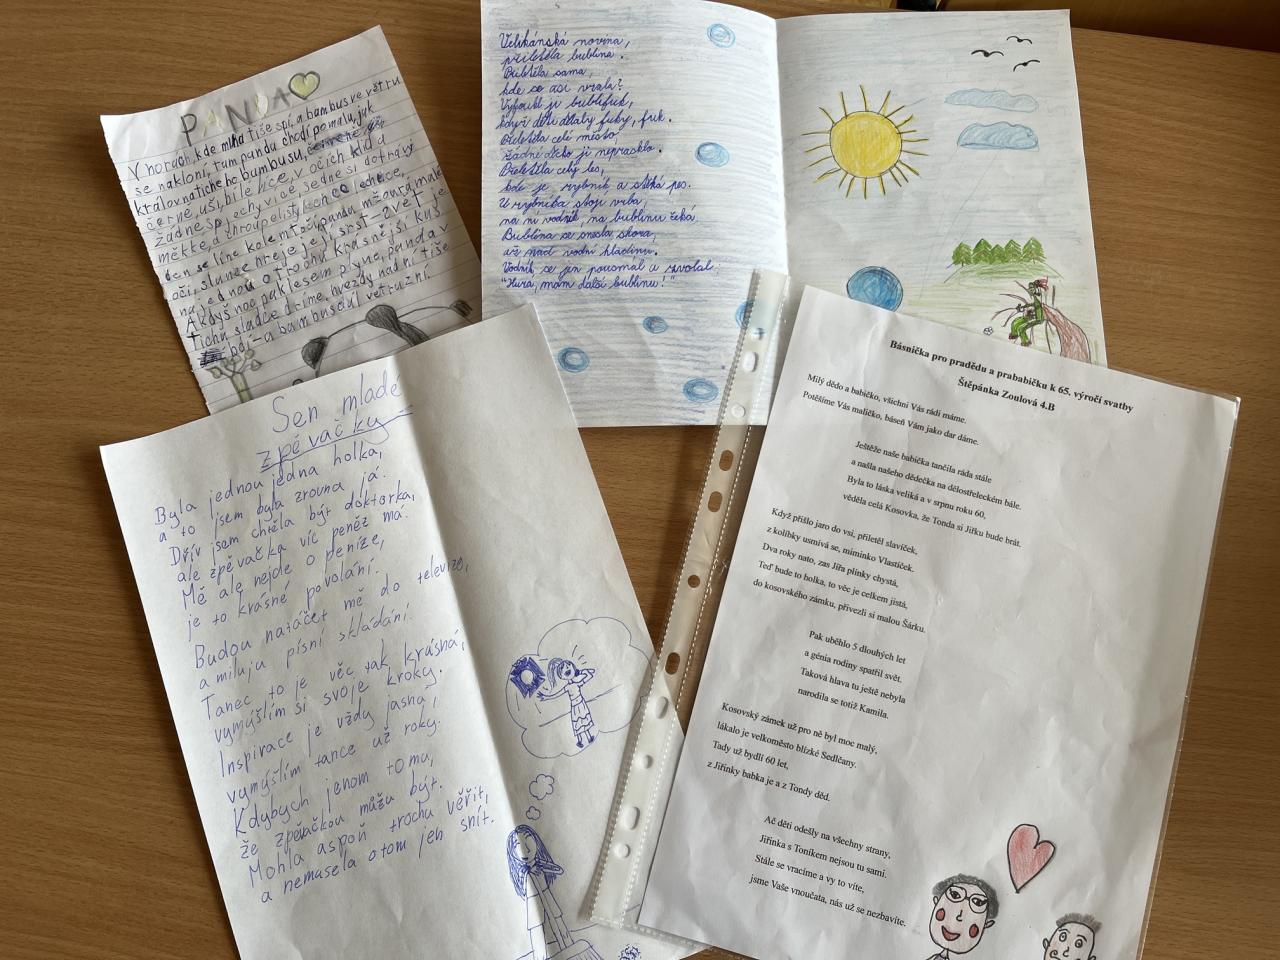 PANDA
V horách, kde mlha tiše spí, a bambus ve větru
se nakloní, tam pandu chodí pomalu, jak
královna tichého bambusu,
černé uši, bílé líce, v očích klid a
žádné spěchy více, sedne si do trávy
měkké, a chroupe listy
den se line kolem točí, panda mžourá malé
očí, slunce hřeje její srst - svět je
najednou o trochu krásnější kus.
A když noc pak lesem plyne, panda v
tichu sladce dříme, hvězdy nad ní tiše
bdí - a bambus dál ve tmě zní.
Velikánská novina,
přiletěla bublina.
Bublěla sama,
kde se asi vzala?
Vyfoukl ji bublifuk,
když děti dělaly fuky, fuk.
Proletěla celé město
žádné děcko ji neprasklo.
Proletěla celý les,
kde je rybník a štěká pes.
U rybníka stojí vrba,
na ní vodník, na bublinu čeká.
Bublina se snesla shora,
až nad vodní hladinu.
Vodník se jen pousmál a zvolal:
"Hurá, mám další bublinu!"
Sen mladé
zpěvačky
Byla jednou jedna holka,
a to jsem byla zrovna já.
Dřív jsem chtěla být doktorka,
ale zpěvačka víc peněz má.
Mě ale nejde o peníze,
je to krásné povolání.
Budou natáčet mě do televize,
a miluju písní skládání.
Tanec to je věc tak krásná,
vymýšlím si svoje kroky.
Inspirace je vždy jasná,
vymýšlím tance už roky.
Kdybych jenom tomu,
že zpěvačkou můžu být.
Mohla aspoň trochu věřit,
a nemusela o tom jen snít.
Básnička pro pradědu a prababičku k 65. výročí svatby
Štěpánka Zoulová 4.B
Milý dědo a babičko, všichni Vás rádi máme.
Potěšíme Vás maličko, báseň Vám jako dar dáme.
Ještěže naše babička tančila ráda stále
a našla našeho dědečka na dělostřeleckém bále.
Byla to láska veliká a v srpnu roku 60,
věděla celá Kosovka, že Tonda si Jiřku bude brát.
Když přišlo jaro do vsi, přiletěl slavíček,
z kolíbky usmívá se, miminko Vlastíček.
Dva roky nato, zas Jiřa plínky chystá,
Teď bude to holka, to věc je celkem jistá,
do kosovského zámku, přivezli si malou Šárku.
Pak uběhlo 5 dlouhých let
a génia rodiny spatřil svět.
Taková hlava tu ještě nebyla
narodila se totiž Kamila.
Kosovský zámek už pro ně byl moc malý,
lákalo je velkoměsto blízké Sedlčany.
Tady už bydlí 60 let,
z Jiřinky babka je a z Tondy děd.
Ač děti odešly na všechny strany,
Jiřinka s Toníkem nejsou tu sami.
Stále se vracíme a vy to víte,
jsme Vaše vnoučata, nás už se nezbavíte.